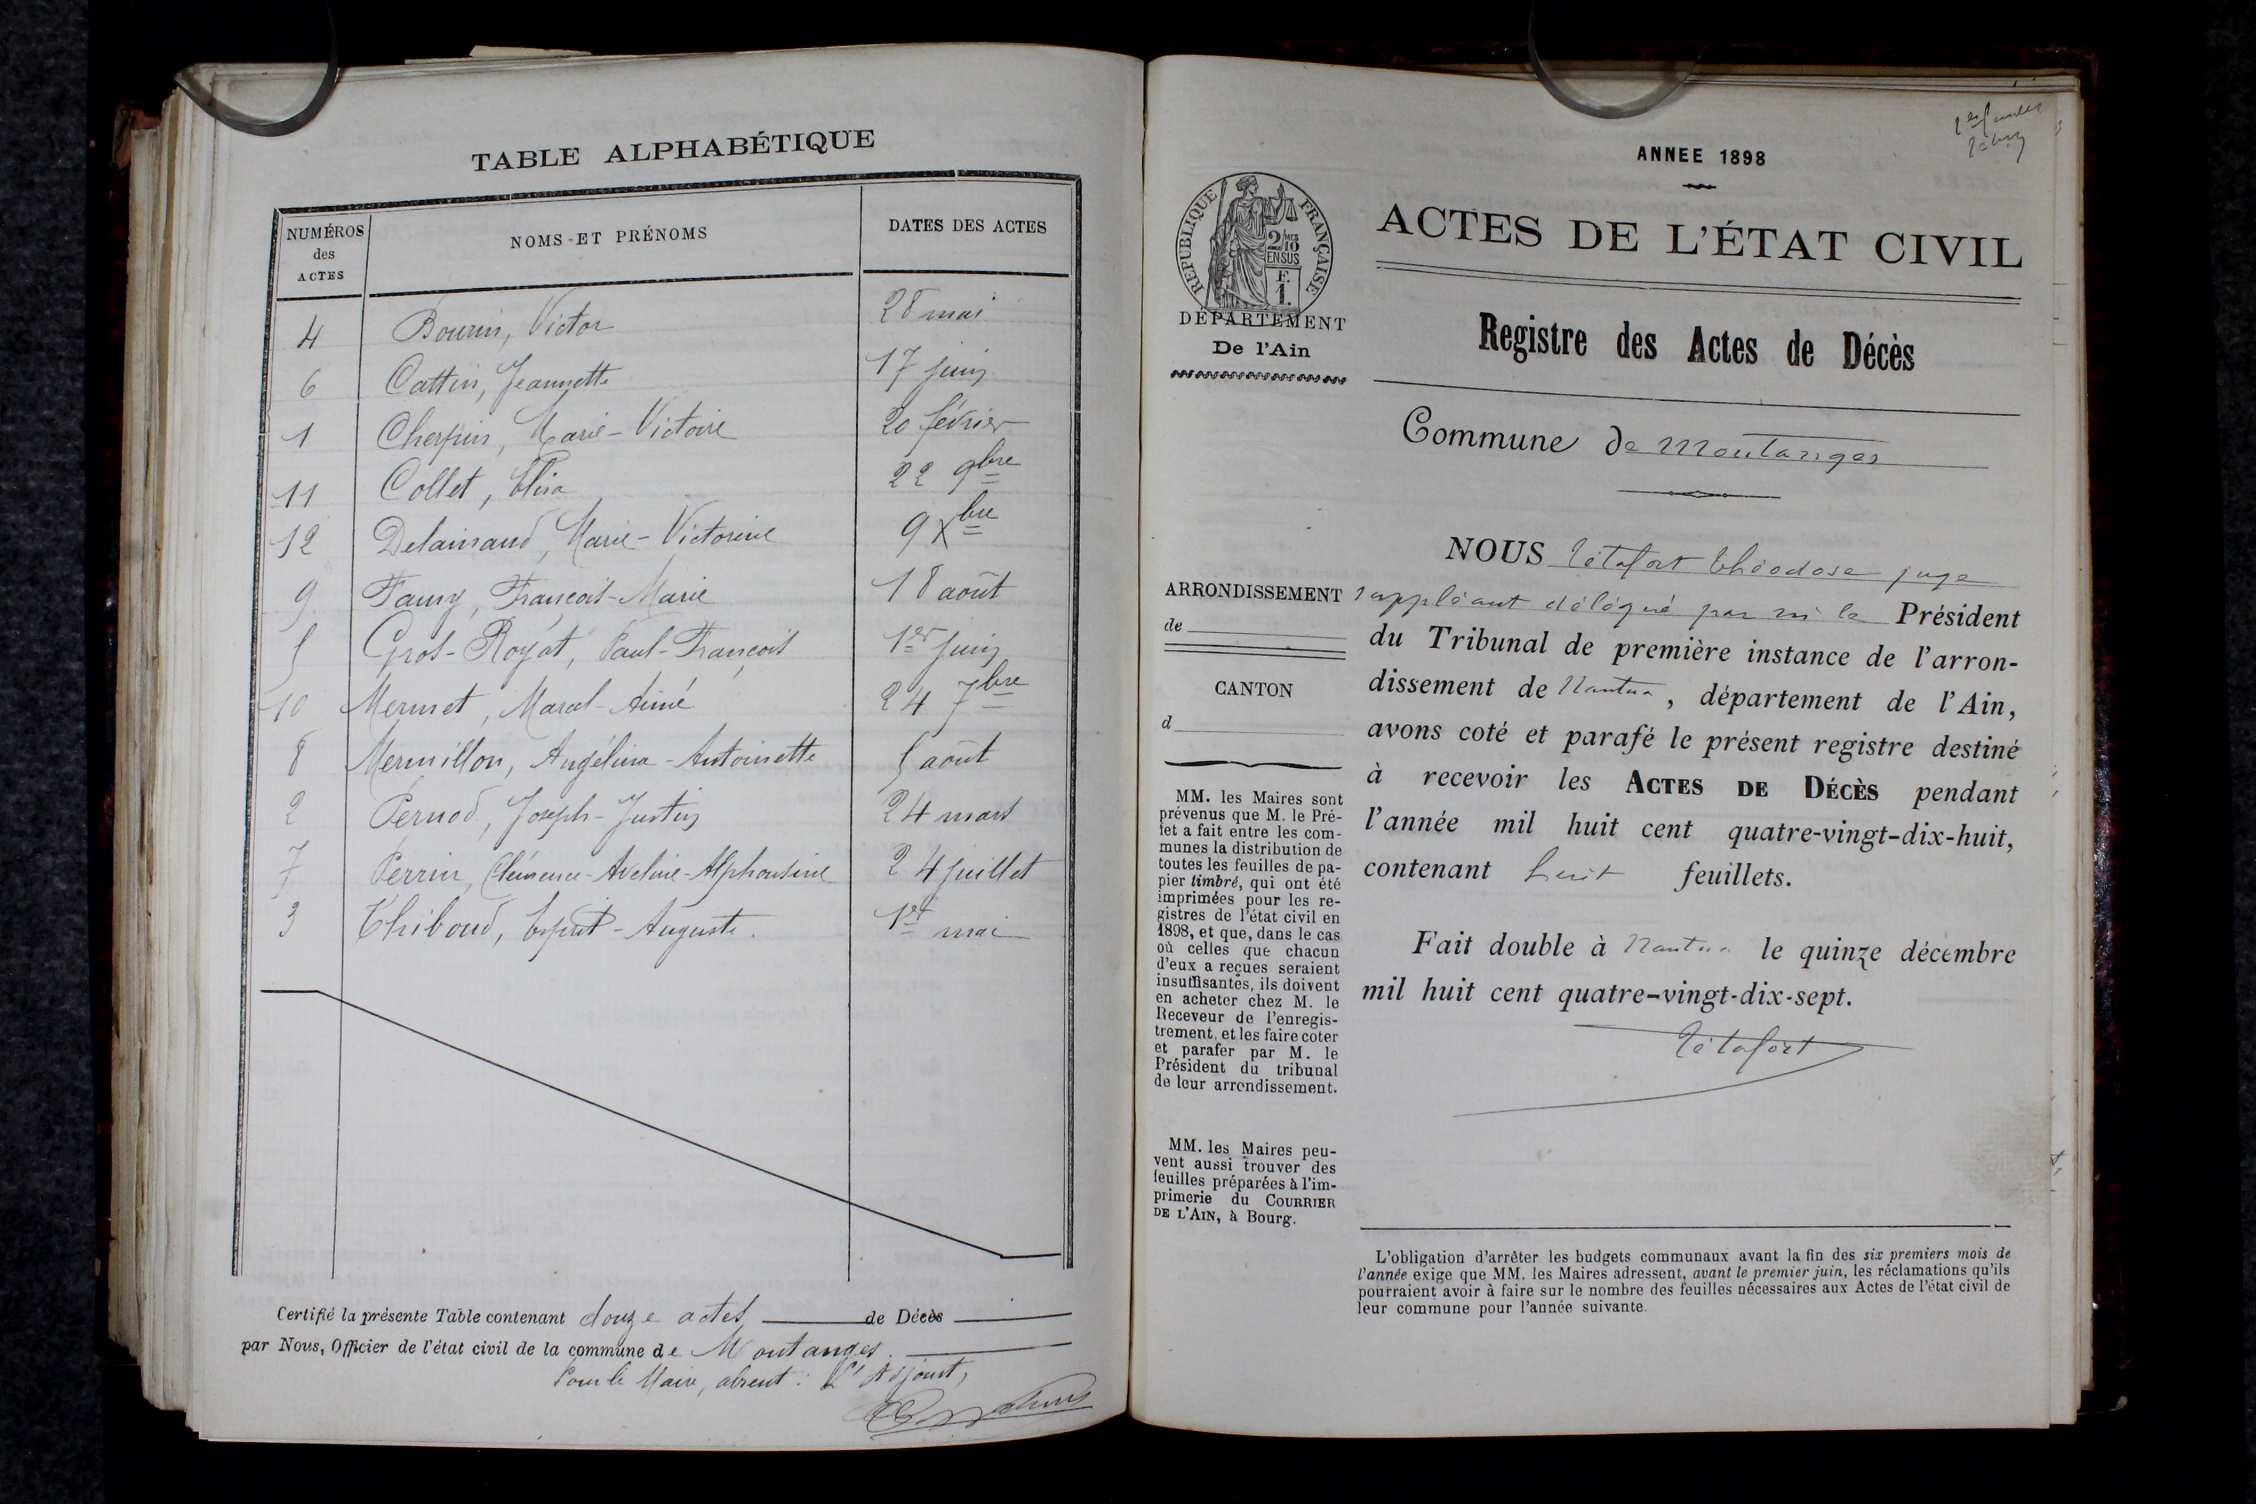 TABLE ALPHABÉTIQUE
NUMÉROS des ACTES
NOMS ET PRÉNOMS
DATES DES ACTES
4 Bourin, Victor 28 mai
6 Cattin, Jeannette 17 juin
1 Cherpin, Marie-Victoire 20 février
11 Collet, Elisa 22 9bre
12 Delainaud, Marie-Victorine 9 Xbre
9 Famy, François-Marie 18 août
5 Gros-Royat, Paul-François 1er juin
10 Mermet, Maral-Aimé 24 7bre
8 Mermillon, Angélina-Antoinette 5 août
2 Pernod, Joseph-Justin 24 mars
7 Perrin, Clémence-Aveline-Alphonsine 24 juillet
3 Thiboud, Esprit-Auguste. 1er mai
Certifié la présente Table contenant douze actes de Décès
par Nous, Officier de l'état civil de la commune de Montanges.
Pour le Maire, absent: L'Adjoint,
ANNEE 1898
RÉPUBLIQUE FRANÇAISE
2/10
EN SUS
F.
1.
ACTES DE L'ÉTAT CIVIL
DÉPARTEMENT
De l'Ain
Registre des Actes de Décès
Commune de Montanges
NOUS Tétafort Théodose juge
suppléant délégué par m le Président
du Tribunal de première instance de l'arron-
dissement de Nantua, département de l'Ain,
avons coté et parafé le présent registre destiné
à recevoir les ACTES DE DÉCÈS pendant
l'année mil huit cent quatre-vingt-dix-huit,
contenant huit feuillets.
Fait double à Nantua le quinze décembre
mil huit cent quatre-vingt-dix-sept.
Tétafort
ARRONDISSEMENT
de
CANTON
d
MM. les Maires sont
prévenus que M. le Pré-
fet a fait entre les com-
munes la distribution de
toutes les feuilles de pa-
pier timbré, qui ont été
imprimées pour les re-
gistres de l'état civil en
1898, et que, dans le cas
où celles que chacun
d'eux a reçues seraient
insuffisantes, ils doivent
en acheter chez M. le
Receveur de l'enregis-
trement, et les faire coter
et parafer par M. le
Président du tribunal
de leur arrondissement.
MM. les Maires peu-
vent aussi trouver des
feuilles préparées à l'im-
primerie du COURRIER
DE L'AIN, à Bourg.
L'obligation d'arrêter les budgets communaux avant la fin des six premiers mois de
l'année exige que MM. les Maires adressent, avant le premier juin, les réclamations qu'ils
pourraient avoir à faire sur le nombre des feuilles nécessaires aux Actes de l'état civil de
leur commune pour l'année suivante.